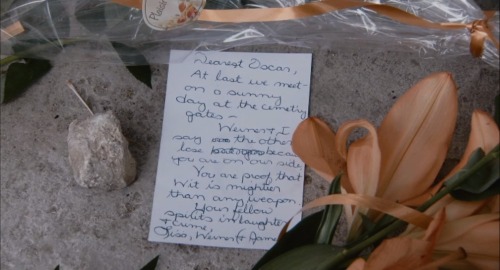 Dearest Oscar,
At last we meet -
on a sunny
day at the cemetry
gates ~
Werner & I
say the other
lose
you are on our side
You are proof that
Wit is mightier
than any weapon.
Your fellow
spirits in laughter
+ crime,
Lisa, Werner (&